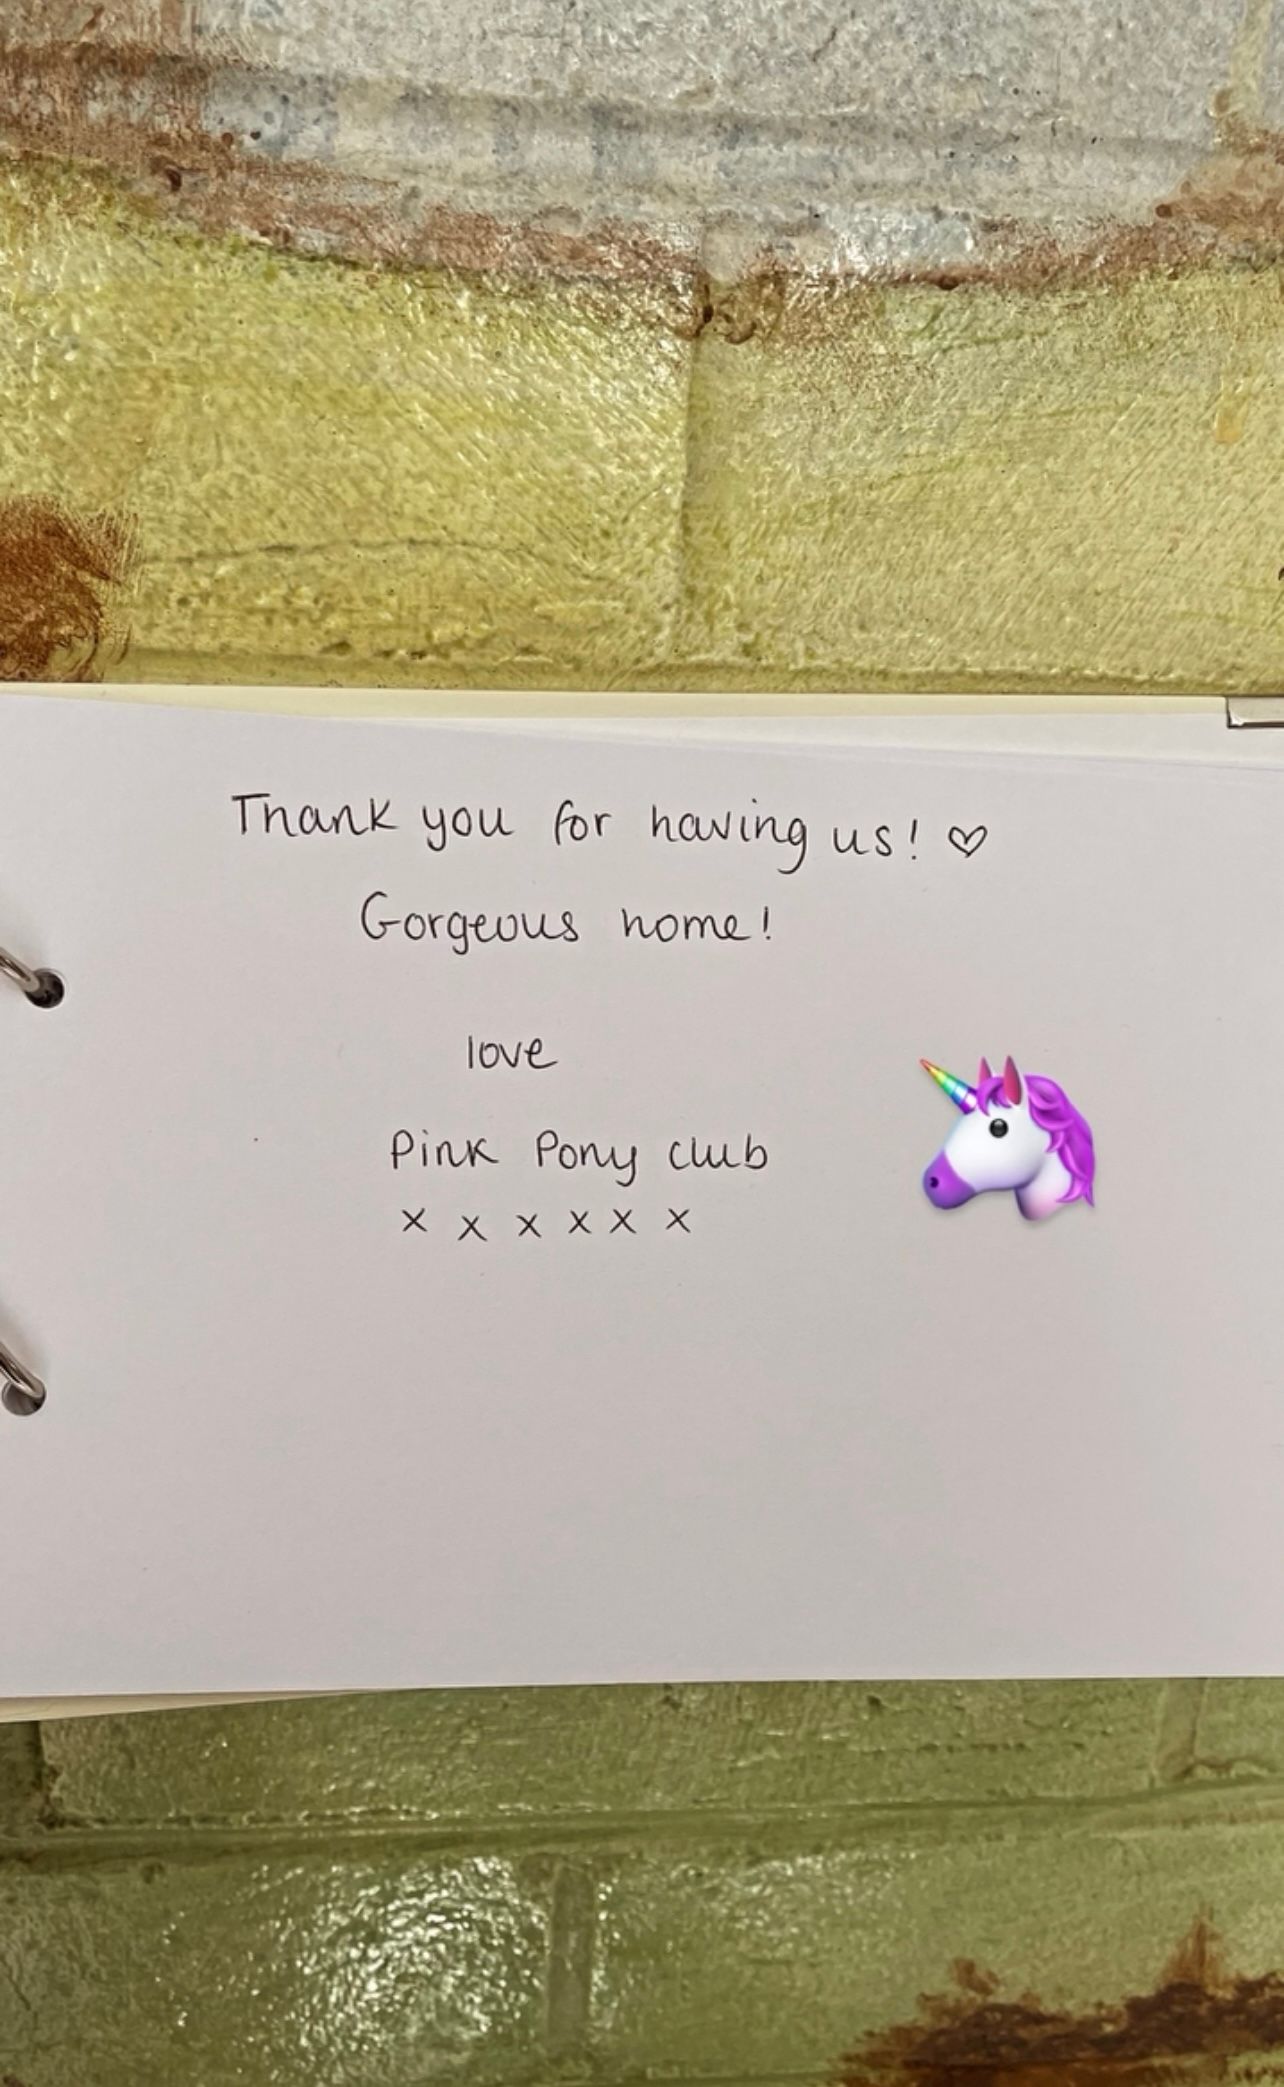 Thank you for having us! ♡
Gorgeous home!
love
Pink Pony club
x x x x x x